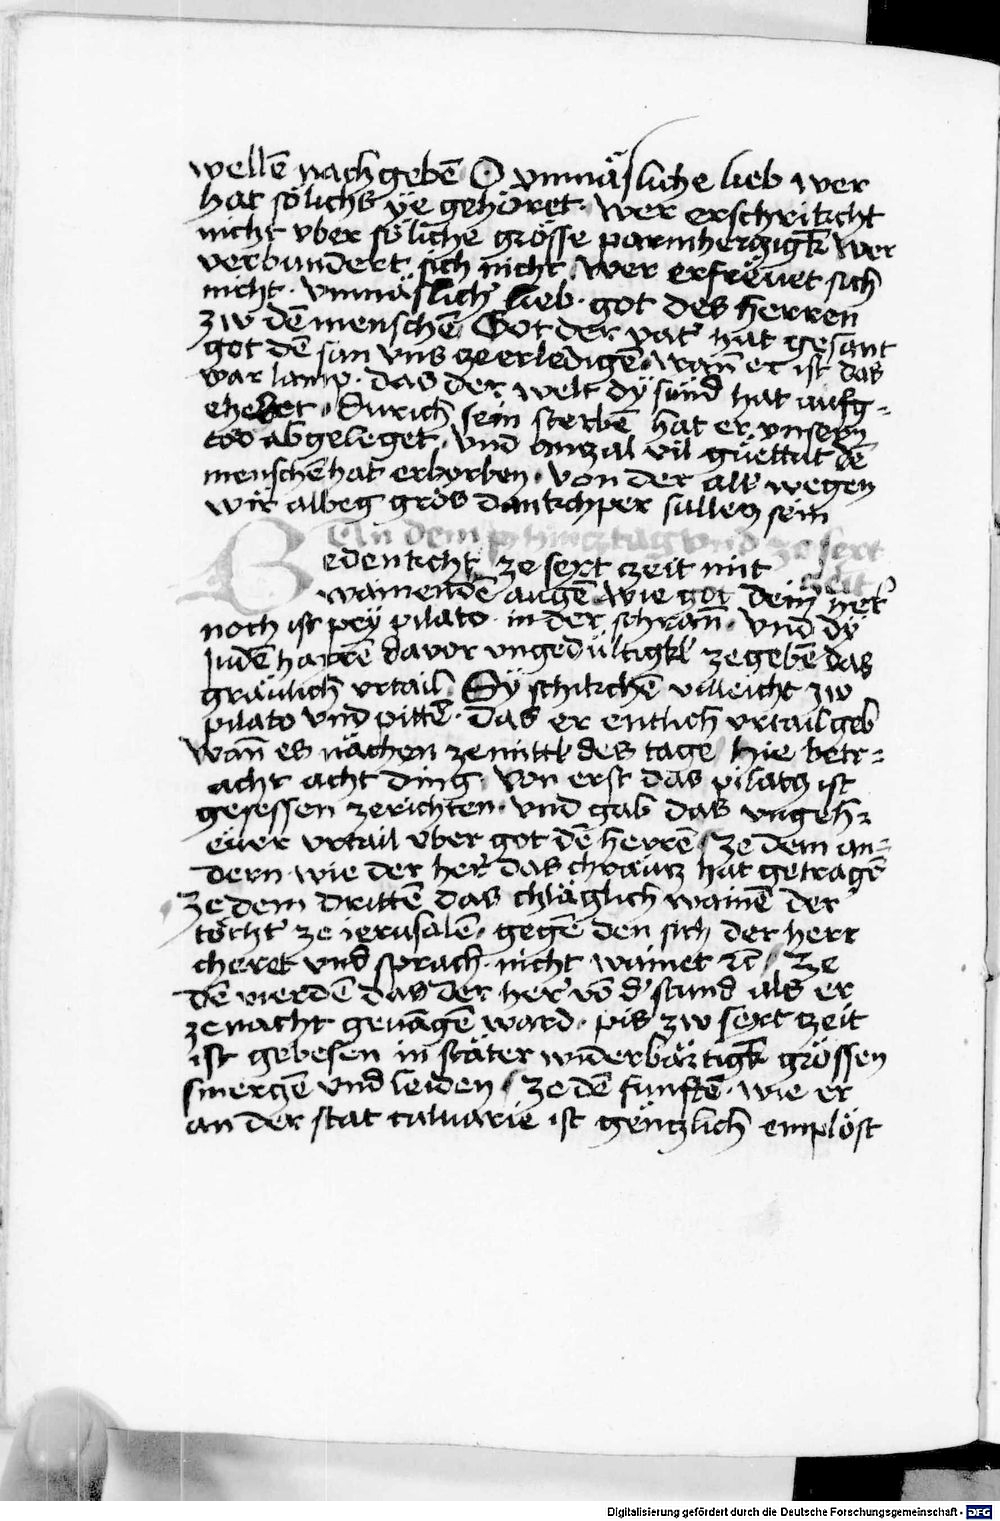 wellē nach gebē O vnmäsliche lieb wer
hat sölichs ye gehöret · wer erschrikcht
nicht vber söliche grösse parmherczigk̄ wer
verbundert sich nicht wer erfrëuet sich
nicht · vnmäslich' lieb · got des herren
zw dē menschē Got der vat' hat gesant
got dē sun vns ze erledigē wañ er ist das
war lamp · das der welt dÿ sünd hat aufg=
ehebt · Durich sein sterbē hat er vnsern
tod abgeleget · vnd vil güettat dē
menschē hat erborben · von der all' wegen
wir albeg gros dankchper sullen sein
An dem phincztag vnd ze sext
Bedenkcht ze sext czeit mit zeit
wainendē augē wie got dein her'
noch ist pey pilato · in der schrañ · vnd dÿ
Judē harrē davor vngedultigkl' ze gebē das
gräulich vrtail · Sÿ schikchē villeicht zw
pilato vnd pittē · das er entlich vrtail geb
wañ es nächen ze mittē des tags hie betr=
acht acht ding · von erst das pilatus ist
gesessen ze richten · vnd gab das vngeh=
euer vrtail vber got dē herrē ze dem an=
dern · wie der her' das chräutz hat getragē
ze dem drittē das chläglich wainē der
töcht' ze ierusalē · gegē den sich der herr
cheret vnd sprach · nicht wainet ꝛc̄ ze
dē vierdē das der her' vō d' stund als er
ze nacht geuāgē ward · pis zw sext czeit
ist gebesen in stäter widerbärtigk̄ grössen
smerczē vnd leiden ze dē funftē · wie er
an der stat caluarie ist gënczlich emplöst
Digitalisierung gefördert durch die Deutsche Forschungsgemeinschaft - DFG